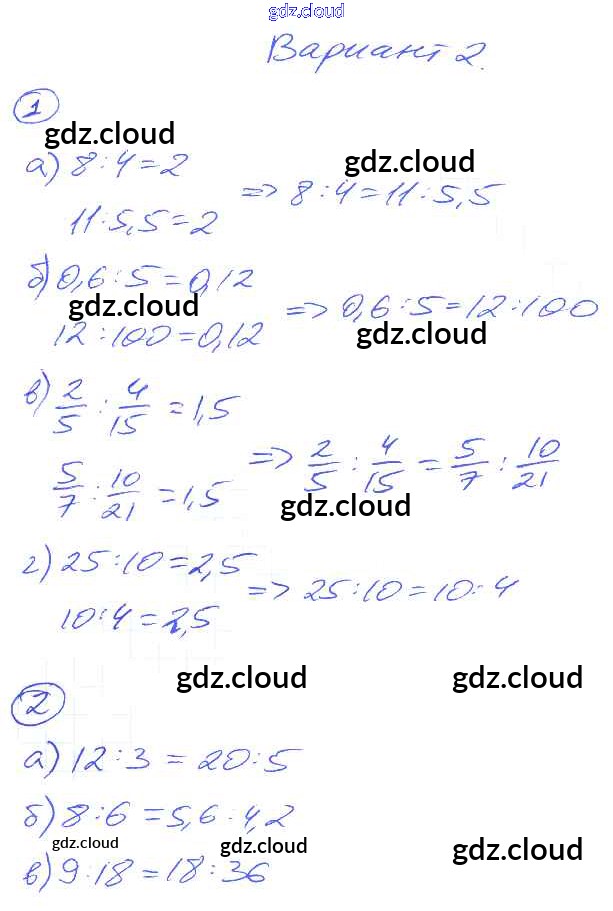 gdz.cloud
Вариант 2.
1
gdz.cloud
а) 8 : 4 = 2
gdz.cloud
=> 8 : 4 = 11 : 5,5
11 : 5,5 = 2
б) 0,6 : 5 = 0,12
gdz.cloud
=> 0,6 : 5 = 12 : 100
12 : 100 = 0,12
gdz.cloud
в) 2/5 : 4/15 = 1,5
=> 2/5 : 4/15 = 5/7 : 10/21
5/7 : 10/21 = 1,5
gdz.cloud
г) 25 : 10 = 2,5
=> 25 : 10 = 10 : 4
10 : 4 = 2,5
gdz.cloud gdz.cloud
2
а) 12 : 3 = 20 : 5
б) 8 : 6 = 5,6 : 4,2
gdz.cloud gdz.cloud gdz.cloud
в) 9 : 18 = 18 : 36